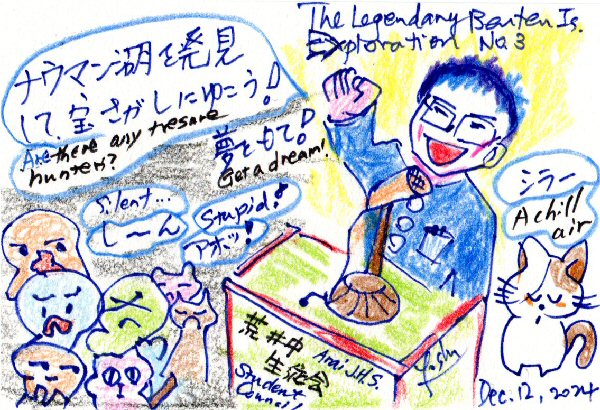 The Legendary Benten Is.
Exploration No.3
ナウマン湖を発見
して、宝さがしにゆこう!
Are there any tresure
hunters?
夢をもて!
Get a dream!
Silent...
し〜ん
Stupid!
アホッ!
シラー
A chill
air
荒井中
生徒会
Arai J.H.S.
Student
Council
Dec. 12, 2024